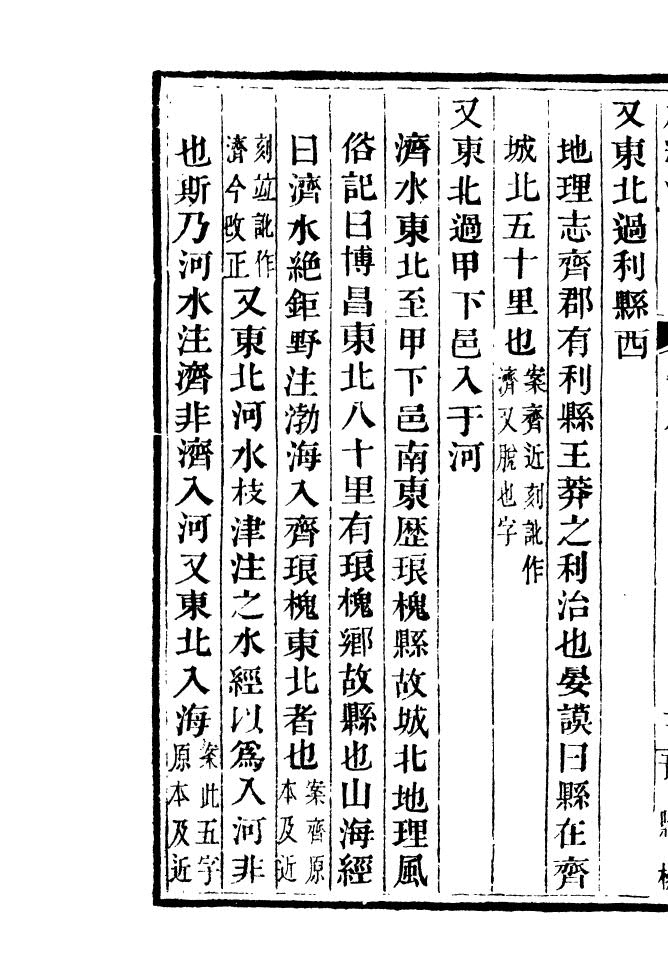 又東北過利縣西
地理志齊郡有利縣王莽之利治也晏謨曰縣在齊
城北五十里也案齊近刻訛作濟又脫也字
又東北過甲下邑入于河
濟水東北至甲下邑南東歴琅槐縣故城北地理風
俗記曰博昌東北八十里有琅槐鄉故縣也山海經
曰濟水絶鉅野注渤海入齊琅槐東北者也案齊原本及近
刻竝訛作濟今改正又東北河水枝津注之水經以爲入河非
也斯乃河水注濟非濟入河又東北入海案此五字原本及近